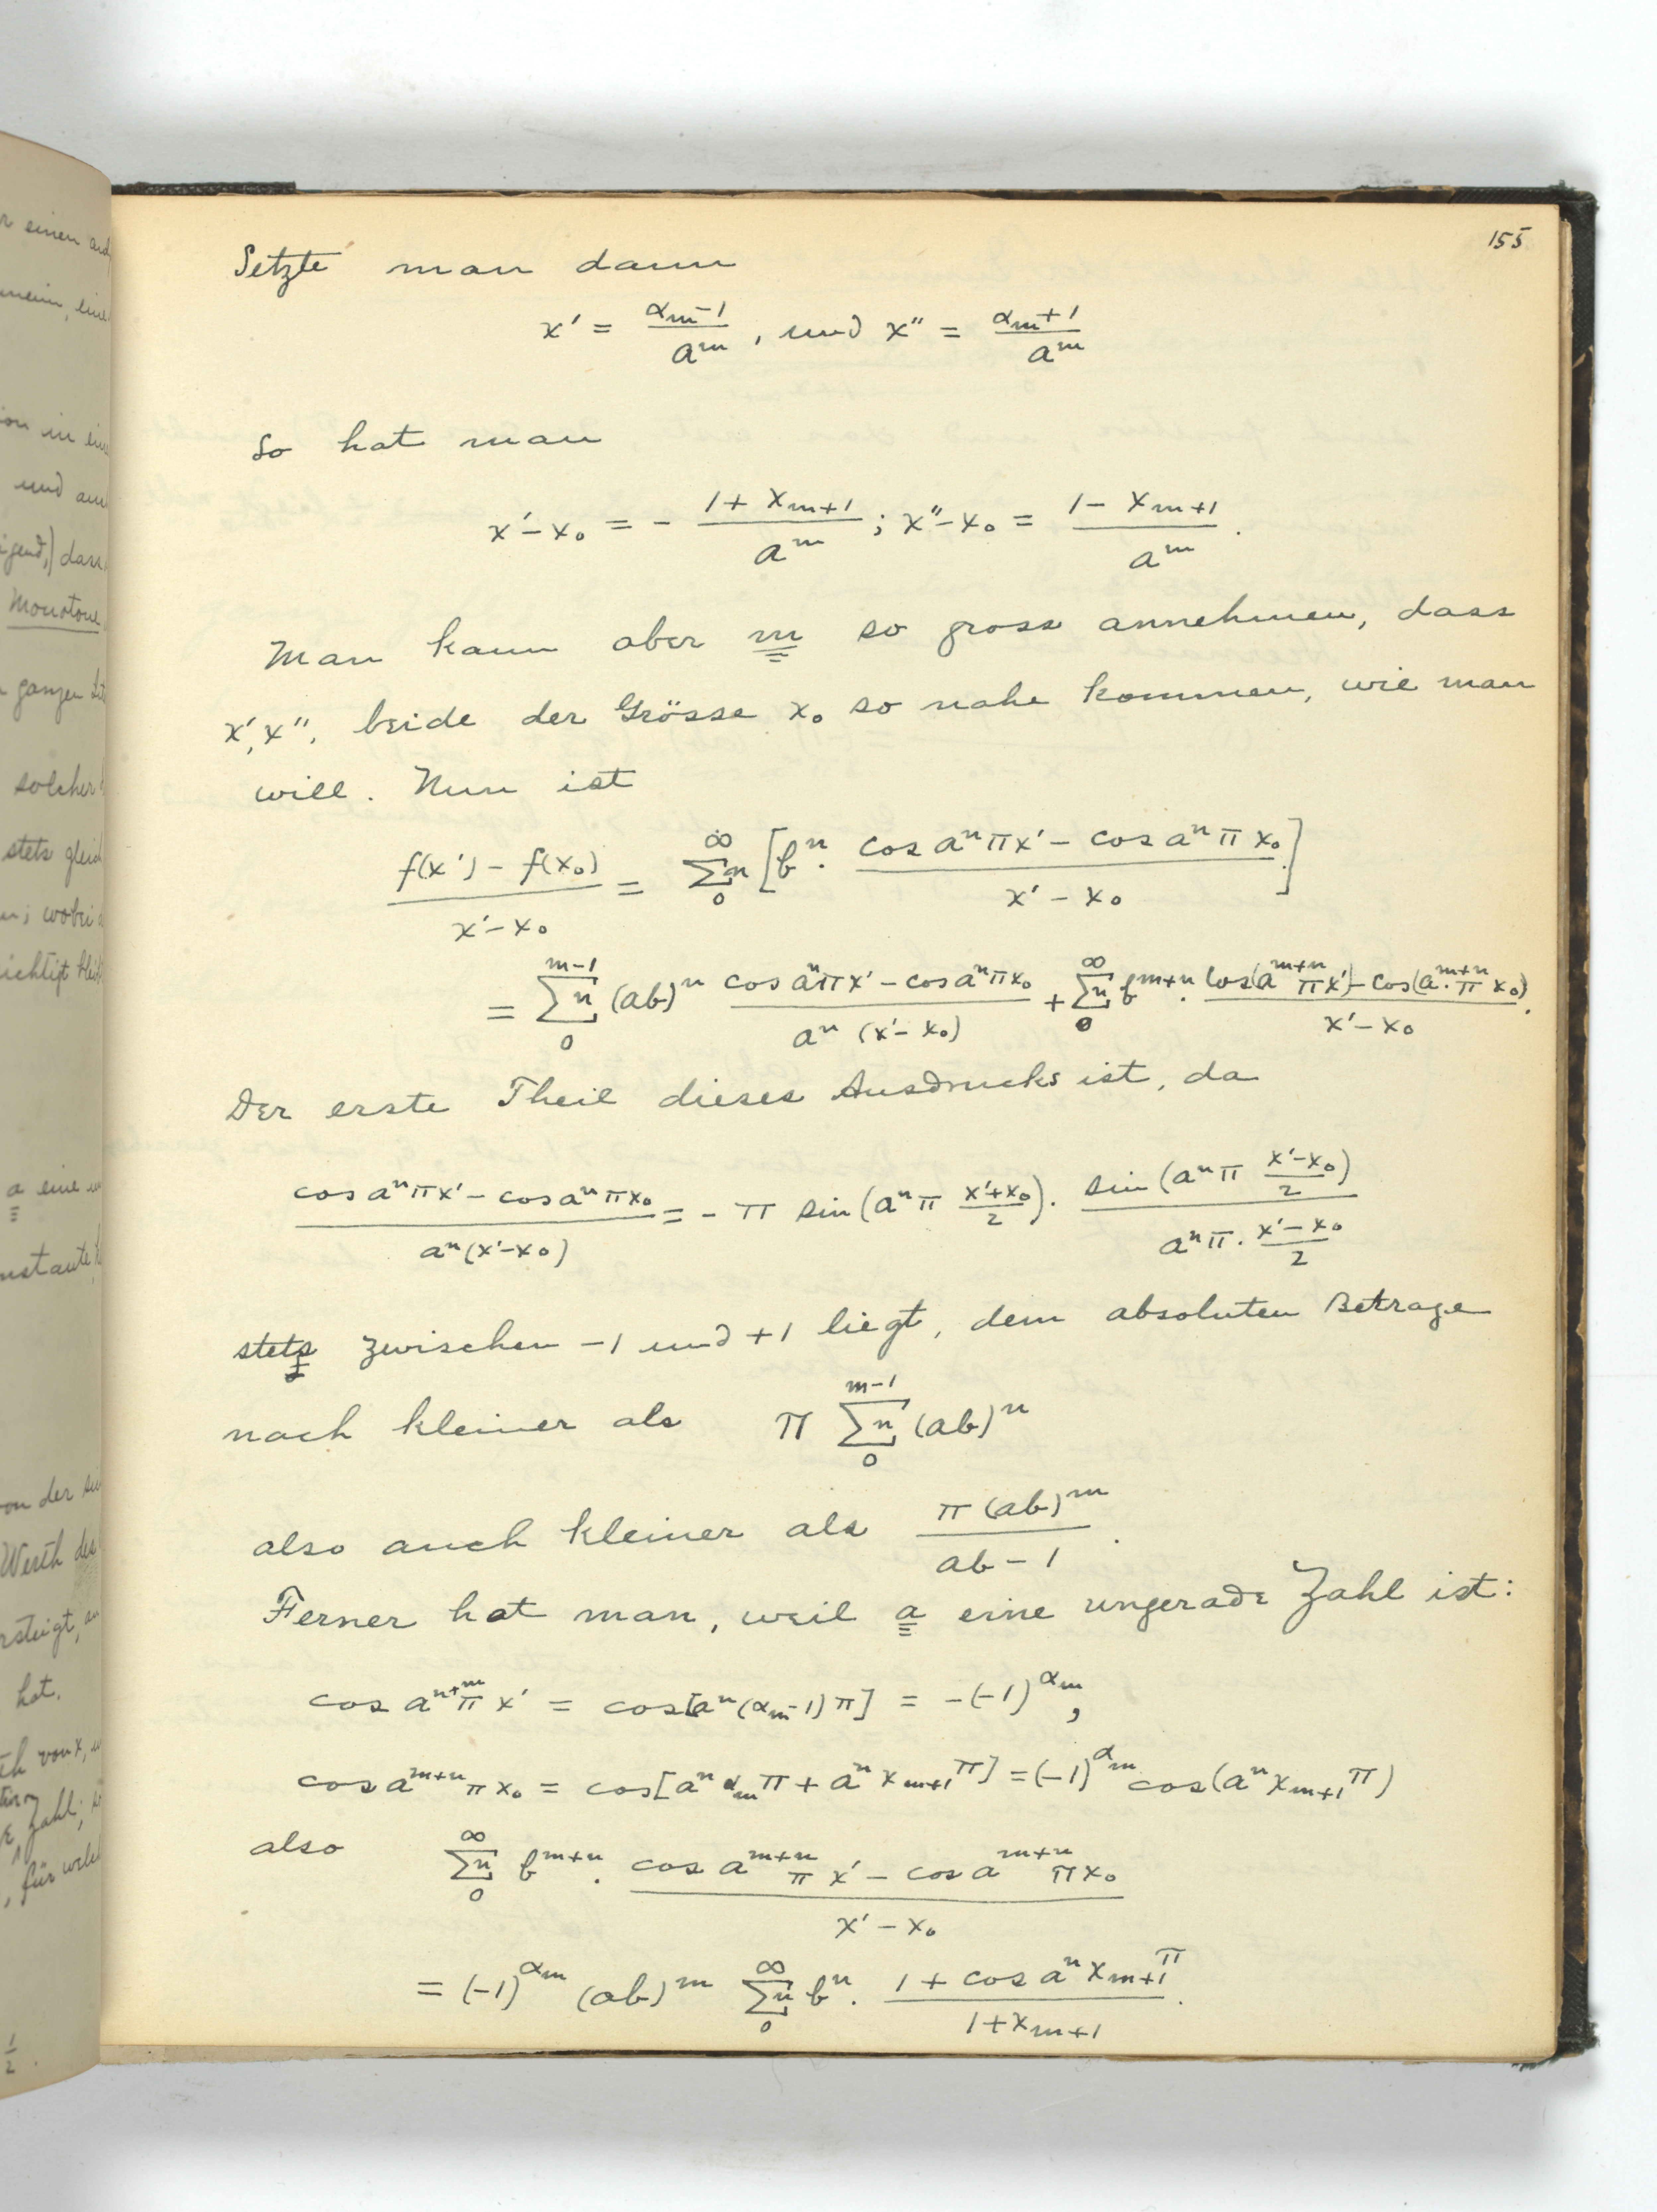 155
Setzte man dann
x' = (α_m - 1)/a^m, und x'' = (α_m + 1)/a^m
So hat man
x' - x_0 = - (1 + x_{m+1})/a^m ; x'' - x_0 = (1 - x_{m+1})/a^m.
Man kann aber m so gross annehmen, dass
x', x'', beide der Grösse x_0 so nahe kommen, wie man
will. Nun ist
(f(x') - f(x_0))/(x' - x_0) = Σn_0^∞ [b^n · (cos a^n π x' - cos a^n π x_0)/(x' - x_0)]
= Σn_0^{m-1} (ab)^n (cos a^n π x' - cos a^n π x_0)/(a^n (x' - x_0)) + Σn_0^∞ b^{m+n} · (cos(a^{m+n} π x') - cos(a^{m+n} · π x_0))/(x' - x_0).
Der erste Theil dieses Ausdrucks ist, da
(cos a^n π x' - cos a^n π x_0)/(a^n (x' - x_0)) = - π sin(a^n π (x' + x_0)/2) · (sin(a^n π (x' - x_0)/2))/(a^n π · (x' - x_0)/2)
stets zwischen -1 und +1 liegt, dem absoluten Betrage
nach kleiner als π Σn_0^{m-1} (ab)^n
also auch kleiner als (π (ab)^m)/(ab - 1).
Ferner hat man, weil a eine ungerade Zahl ist:
cos a^{n+m} π x' = cos[a^n (α_m - 1) π] = -(-1)^{α_m},
cos a^{m+n} π x_0 = cos[a^n α_m π + a^n x_{m+1} π] = (-1)^{α_m} cos(a^n x_{m+1} π)
also Σn_0^∞ b^{m+n} · (cos a^{m+n} π x' - cos a^{m+n} π x_0)/(x' - x_0)
= (-1)^{α_m} (ab)^m Σn_0^∞ b^n · (1 + cos a^n x_{m+1} π)/(1 + x_{m+1}).